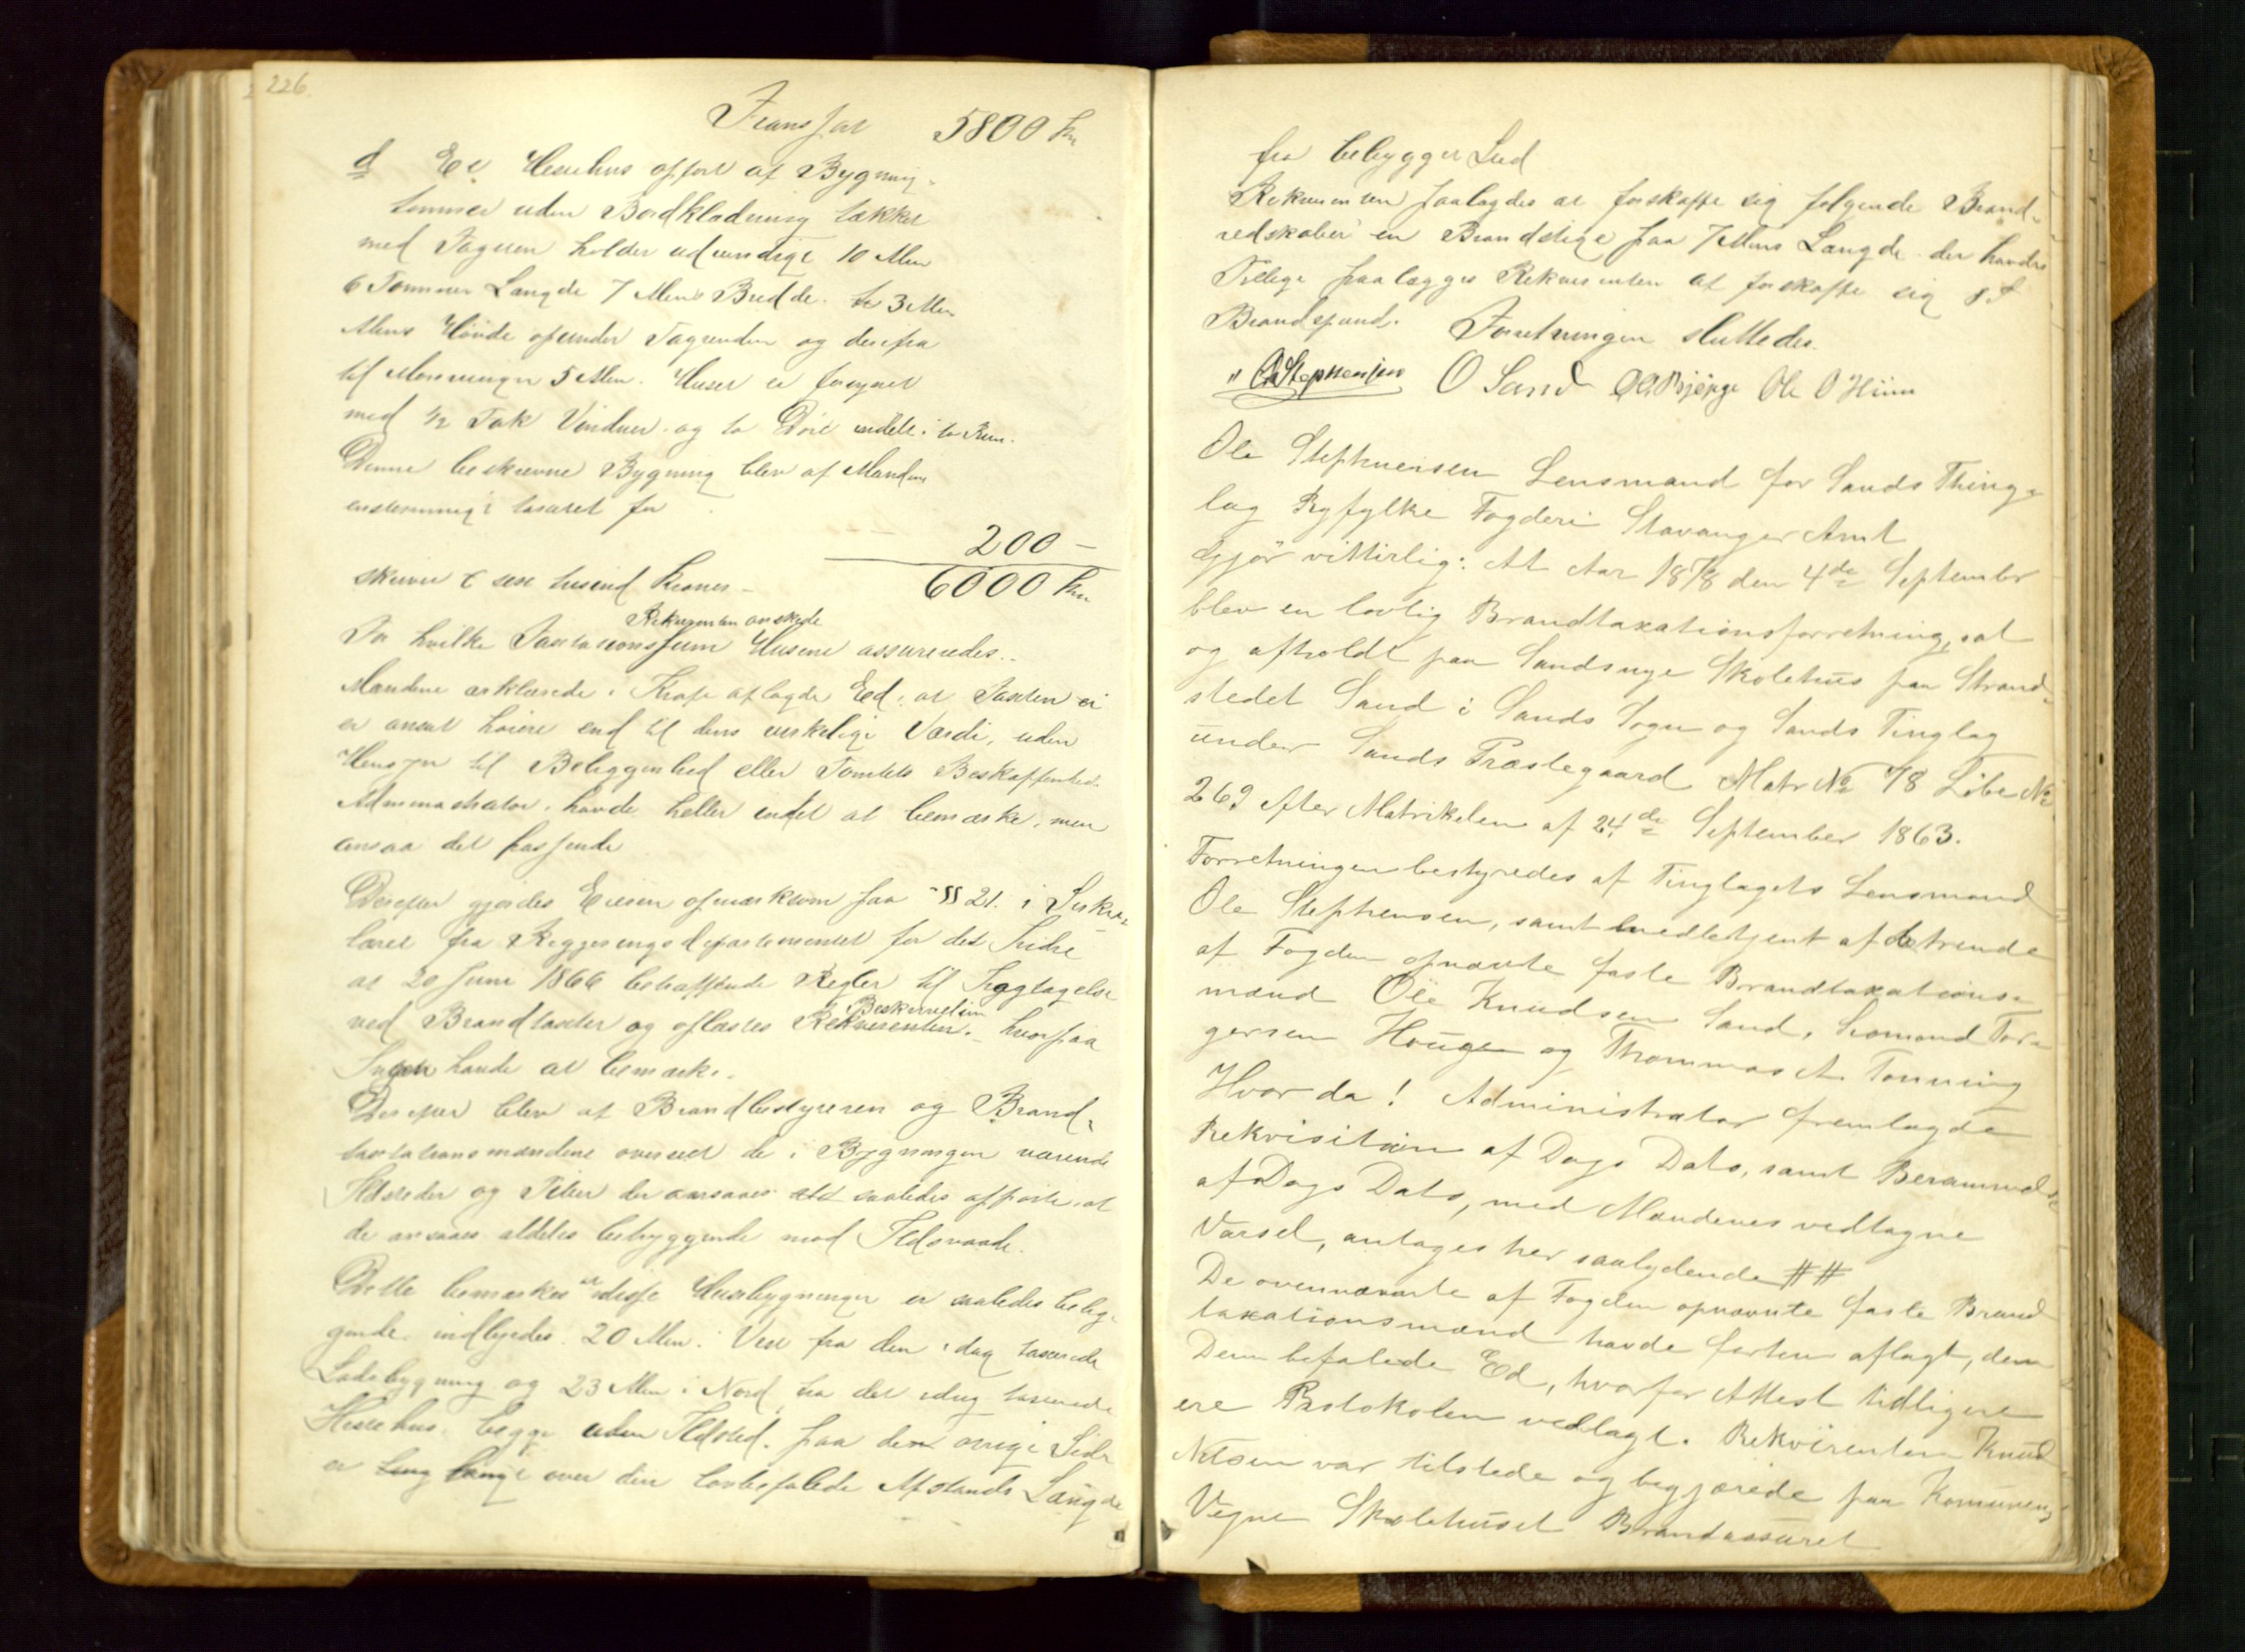 226.
Transport 5800 Kr
d Et Hestehus opført af Bygning-
tømmer uden Bordklædning tækket
med Tagsten holder udvendige 10 Alen
6 Tommer Længde 7 Alens Bredde. to 3 Alen
Alens Høide opunder Tagrenden og derifra
til Mønningen 5 Alen. Huset er forsynet
med 1/2 Fak Vinduer og to Døre indelt i to Rum.
Denne beskrevne Bygning blev af Mændene
enstemmigt taxeret for
200 —
skriver 6 sex tusind Kroner — 6000 Kr.
Rekvirenten ønskede
For hvilke Taxtationssum Husene assureredes.
Mændene erklærede i Kraft aflagde Ed, at Taxten ei
er ansat høiere end til dens virkelige Værdi, uden
Hensyn til Beliggenhed eller Tomtets Beskaffenhed.
Administrator havde heller intet at bemærke, men
ansaa det passende
Derefter gjordes Eieren opmærksom paa §§ 21. i Sirku-
læret fra Reggjeringsdepartementet for det Indre
af 20 Juni 1866 betræffende Regler til Iagttagelse
Beskrivelsen
ved Brandtaxter og oplæstes Rekvirenten. hvorpaa
Ingen havde at bemærke.
Derefter blev af Brandbestyreren og Brand-
taxtationsmændene overseet de i Bygningen værende
Ildsteder og Piber der ansaaes at saaledes opførte, at
de ansaaes aldeles betryggende mod Ildsvaade.
Dette bemærkes at disse Husebygninger er saaledes belig-
gende. indbyrdes 20 Alen i Vest fra den idag taxerede
Ladebygning og 23 Alen i Nord fra det idag taxerede
Hestehus begge uden Ildsted. paa den øvrige Side
er langt over den lovbefalede Afstands Længde
fra bebygget Sted
Rekvirenten paalagdes at forskaffe sig følgende Brand-
redskaber en Brandstige paa 7 Alens Længde der havdes
Tillige paalægges Rekvirenten at forskaffe sig
Brandspand. Forretningen sluttedes.
" O Stephensen O Sand Ole O
Ole Stephensen Lensmand for Sands Thing-
lag Ryfylke Fogderi Stavanger Amt
Gjør vitterlig: At Aar 1878 den 4de September
blev en lovlig Brandtaxationsforretning, sat
og afholdt paa Sands nye Skolehus paa Strand-
stedet Sand i Sands Sogn og Sands Tinglag
under Sands Præstegaard Matr № 78 Løbe №
269 efter Matrikelen af 24de September 1863.
Forretningen bestyredes af Tinglagets Lensmand
Ole Stephensen, samt medbetjent af de trende
af Fogden opnævnte faste Brandtaxations-
mænd Ole Knudsen Sand, Tor-
gersen Houge og Thommas A. Tonning
Hvor da! Administrator fremlagde
Rekvisition af Dags Dato, samt Berammelse
af Dags Dato, med Mændenes vedtagne
Varsel, antages her saalydende ##
De ovennævnte af Fogden opnævnte faste Brand
taxationsmænd havde forhen aflagt, den
Dem befalede Ed, hvorfor Attest tidligere
ere Protokolen vedlagt. Rekvirenten Knud
Nilsen var tilstede og begjærede paa Komunens
Vegne Skolehuset Brandassuret